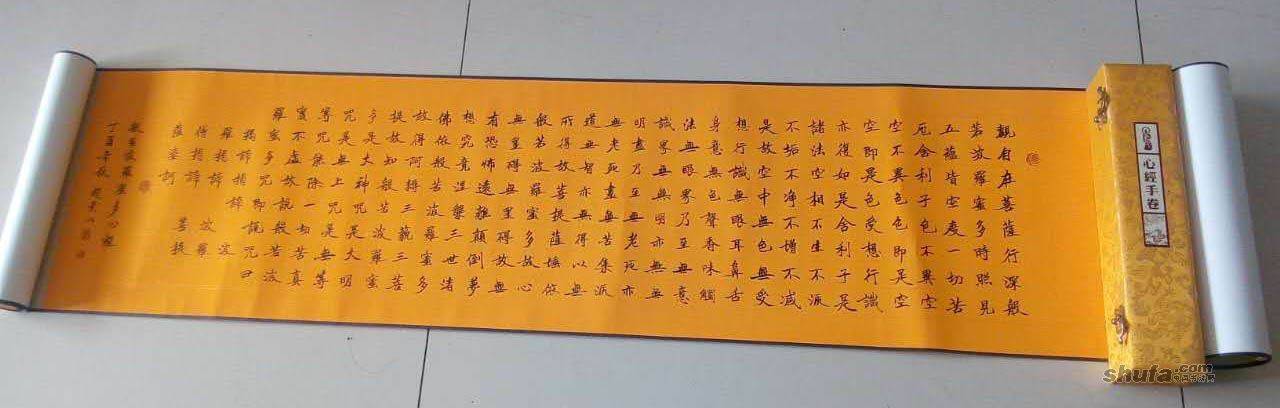 觀自在菩薩行深般
若波羅蜜多時照見
五蘊皆空度一切苦
厄舍利子色不異空
空不異色色即是空
空即是色受想行識
亦復如是舍利子是
諸法空相不生不滅
不垢不淨不增不減
是故空中無色無受
想行識無眼耳鼻舌
身意無色聲香味觸
法無眼界乃至無意
識界無無明亦無無
明盡乃至無老死亦
無老死盡無苦集滅
道無智亦無得以無
所得故菩提薩埵依
般若波羅蜜多故心
無罣礙無罣礙故無
有恐怖遠離顛倒夢
想究竟涅槃三世諸
佛依般若波羅蜜多
故得阿耨三藐三菩
提故知般若波羅蜜
多是大神咒是大明
咒是無上咒是無等
等咒能除一切苦真
實不虛故說般若波
羅蜜多咒即說咒曰
揭諦揭諦 波
羅揭諦 波羅
僧揭諦 菩提
薩婆訶
般若波羅蜜多心經
丁酉年秋
心經手卷
shufa.com